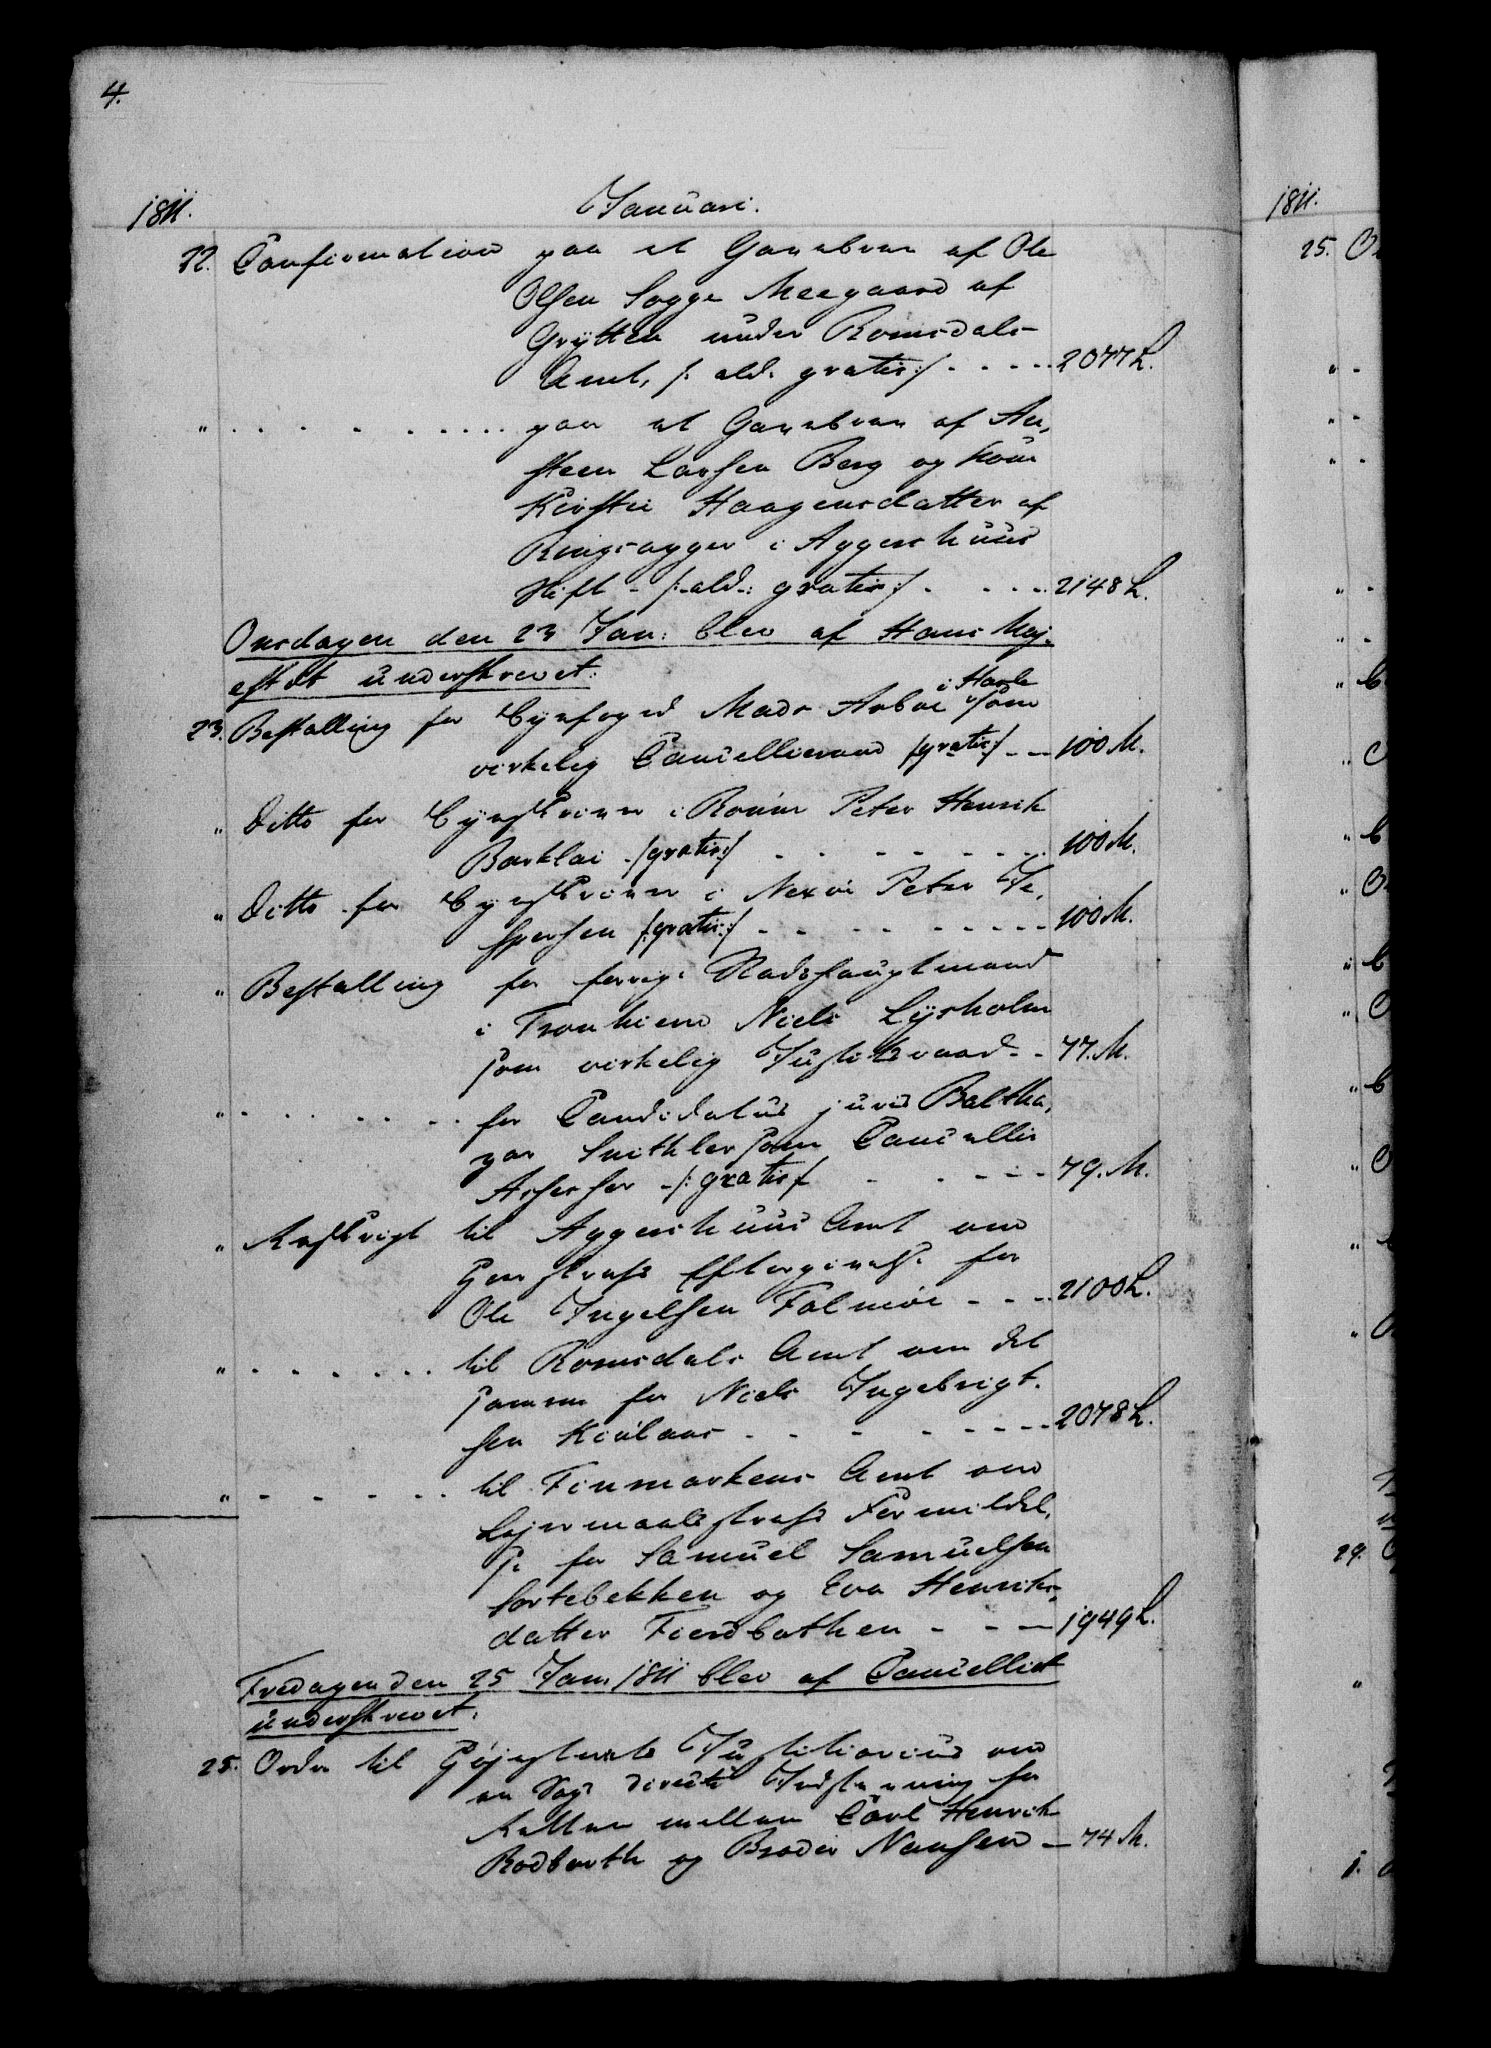 4.
1811. Januari.
22. Confirmation paa et Gavebrev af Ole
Olsen Sogge Meegaard af
Grytten under Romsdals
Amt, /: ald. gratis :/ - - - - 2077 L.
" . . . . . . . . paa et Gavebrev af Au,
steen Larsen Berg og Kone
Kirstie Haagensdatter af
Ringsagger i Aggershuus
Stift - /: ald.: gratis :/ - - - - 2148 L.
Onsdagen den 23 Jan: blev af Hans Maj,
estæt underskrevet:
i Hasle
23. Bestalling for Byefoged Mads Arboe som
virkelig Cancellieraad /gratis:/ - - 100 M.
" Ditto for Byeskriver i Rønne Peter Henrik
Barklai - /gratis:/ - - - - - - - 100 M.
" Ditto for Byeskriver i Nexøe Peter Je,
spersen /:gratis:/ - - - - - - - - 100 M.
" Bestalling for forrige Stadshauptmand
i Tronhiem Niels Lysholm
som virkelig Justitsraad - - 77. M.
" . . . . . . for Candidatus juris Baltha,
zar Smithler som Cancellie
Assessor - /: gratis / - - - - 79. M.
" Reskript til Aggershuus Amt om
Hoer strafs Eftergivelse for
Ole Ingelsen Folmoe - - - 2100 L.
" - - - - - - til Romsdals Amt om det
samme for Niels Ingebrigt.
sen Kiulaas - - - - - - - - 2078 L.
" - - - - - - til Finmarkens Amt om
Lejermaals strafs Formildel,
se for Samuel Samuelsen
Sortebekken og Eva Henriks,
datter Fierdbathen - - - 1949 L.
Fredagen den 25 Jan 1811 blev af Cancelliet
underskrevet:
25. Ordre til Højesterets Justitiarius om
en Sags directe Indstævning for
Retten mellem Carl Henrik
Rodbarth og Broder Nansen - 74 M.
1811.
25.
29.
1.